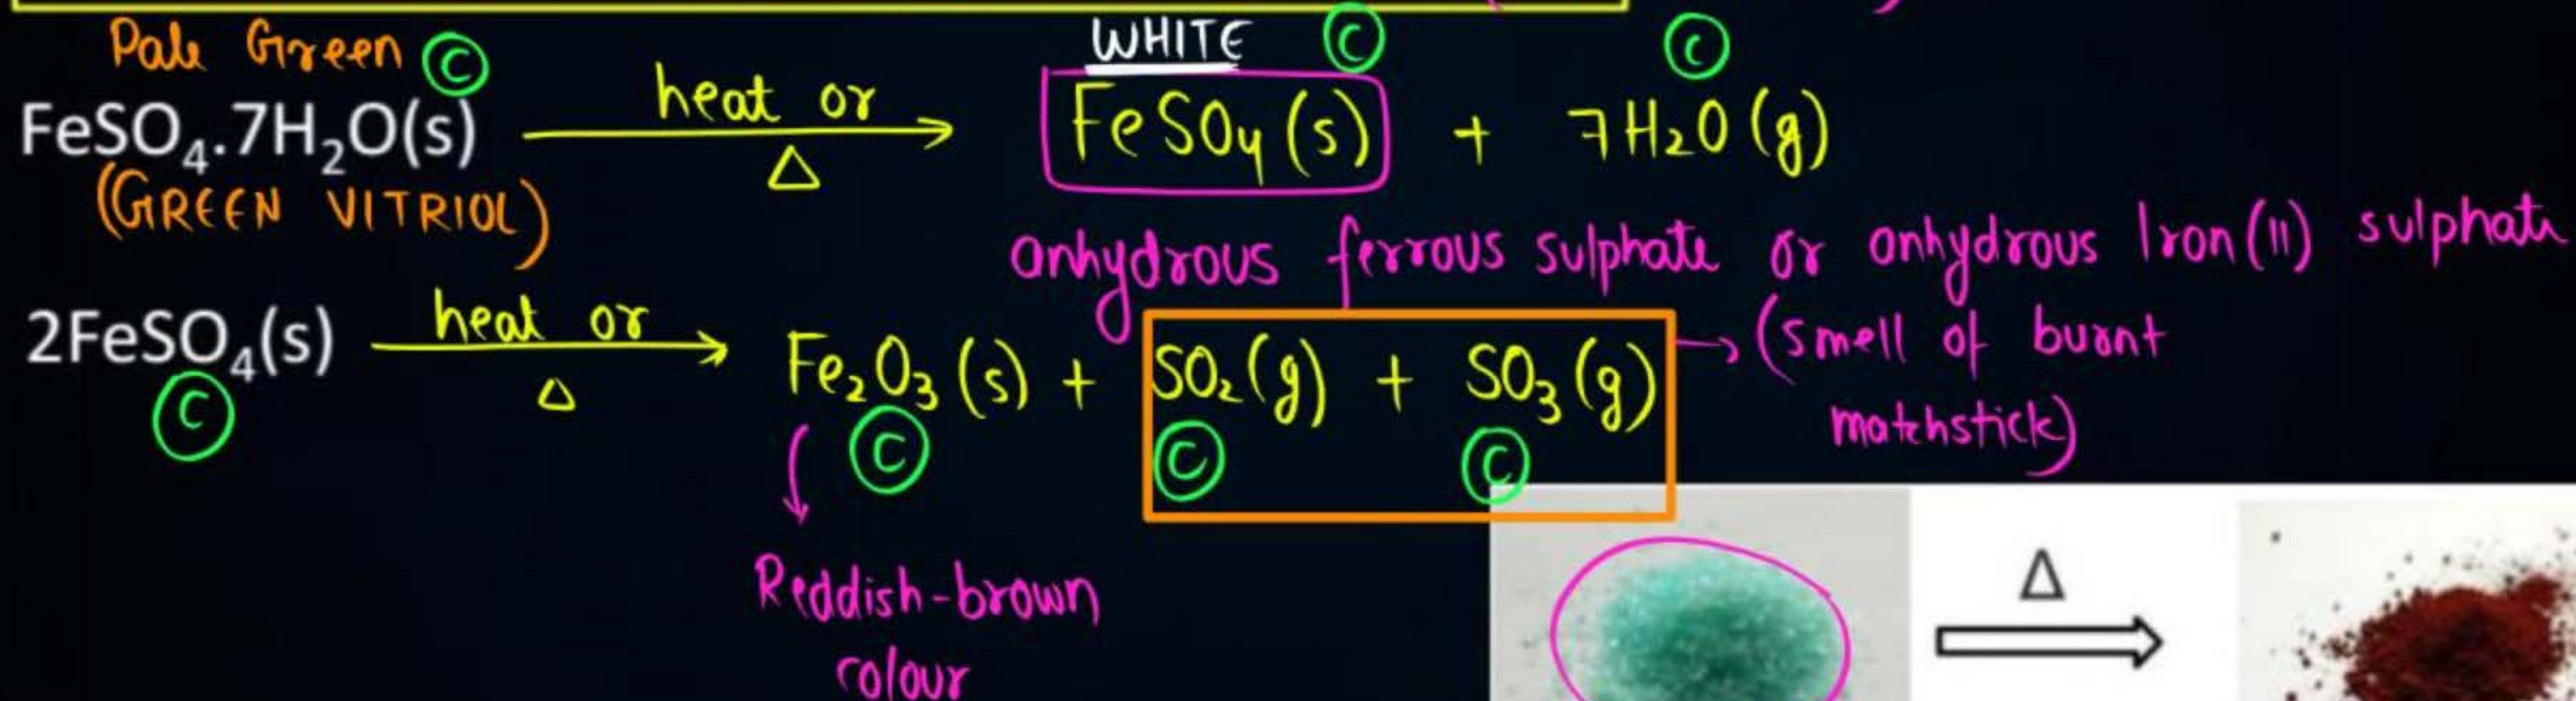 Pale Green Ⓒ WHITE Ⓒ Ⓒ
FeSO₄.7H₂O(s) heat or Δ FeSO₄(s) + 7H₂O(g)
(GREEN VITRIOL)
anhydrous ferrous sulphate or anhydrous Iron(II) sulphate
2FeSO₄(s) heat or Δ Fe₂O₃(s) + SO₂(g) + SO₃(g) → (smell of burnt
matchstick)
Ⓒ Ⓒ Ⓒ Ⓒ
Reddish-brown
colour
Δ